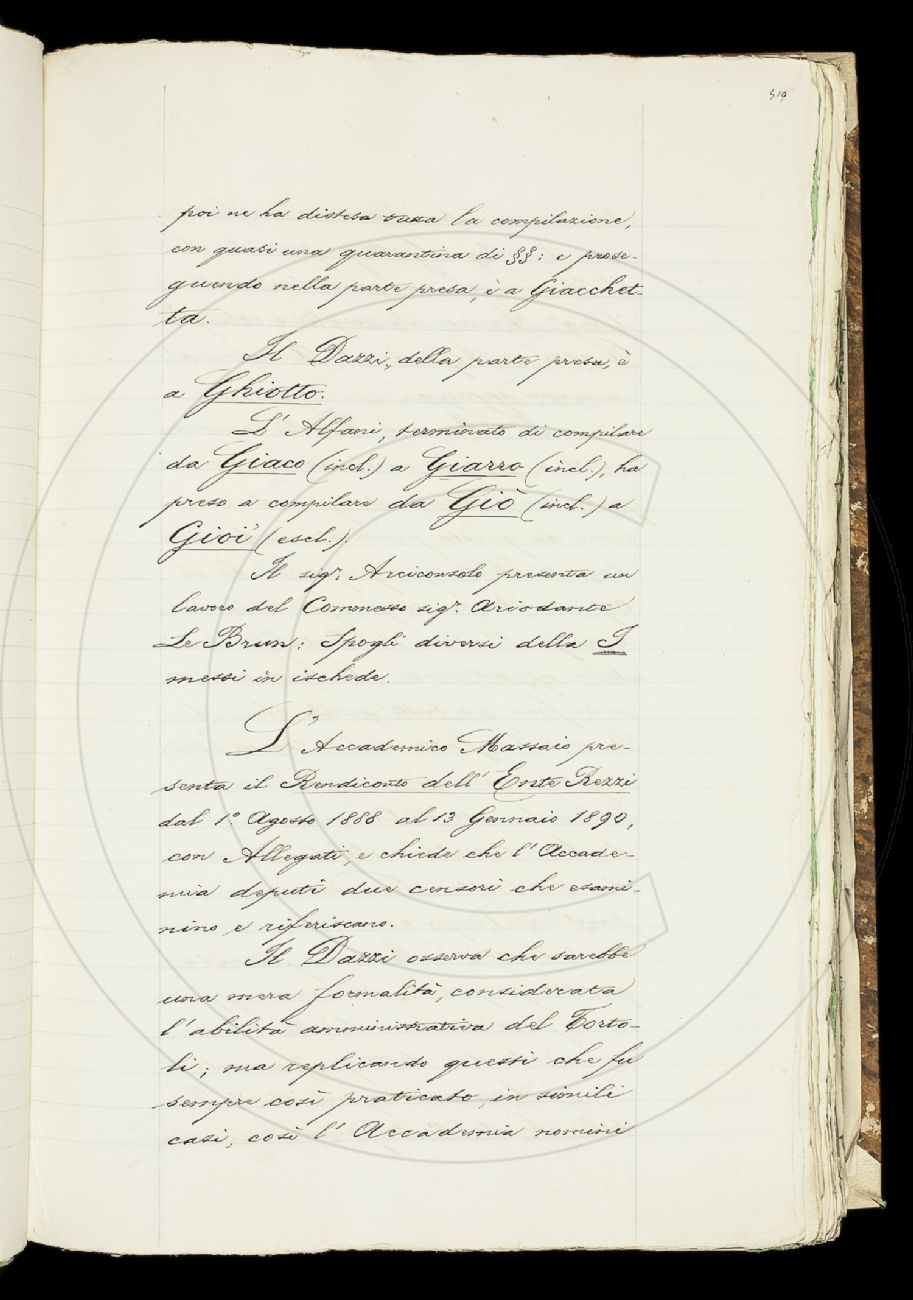 519
poi ne ha distesa tutta la compilazione,
con quasi una quarantina di §§: e prose-
guendo nella parte presa, è a Giacchet-
ta.
Il Dazzi, della parte presa, è
a Ghiotto.
L' Alfani, terminato di compilare
da Giaco (incl.) a Giarro (incl.), ha
preso a compilare da Giò (incl.) a
Gioi' (escl.).
Il sigr. Arciconsolo presenta un
lavoro del Commesso sigr. Ariodante
Le Brun: Spogli diversi della I
messi in ischede.
L' Accademico Massaio pre-
senta il Rendiconto dell' Ente Rezzi
dal 1.° Agosto 1888 al 13 Gennaio 1890,
con Allegati, e chiede che l' Accade-
mia deputi due censori che esami-
nino e riferiscano.
Il Dazzi osserva che sarebbe
una mera formalità, considerata
l' abilità amministrativa del Torto-
li; ma replicando questi che fu
sempre così praticato in simili
casi, così l' Accademia nomini